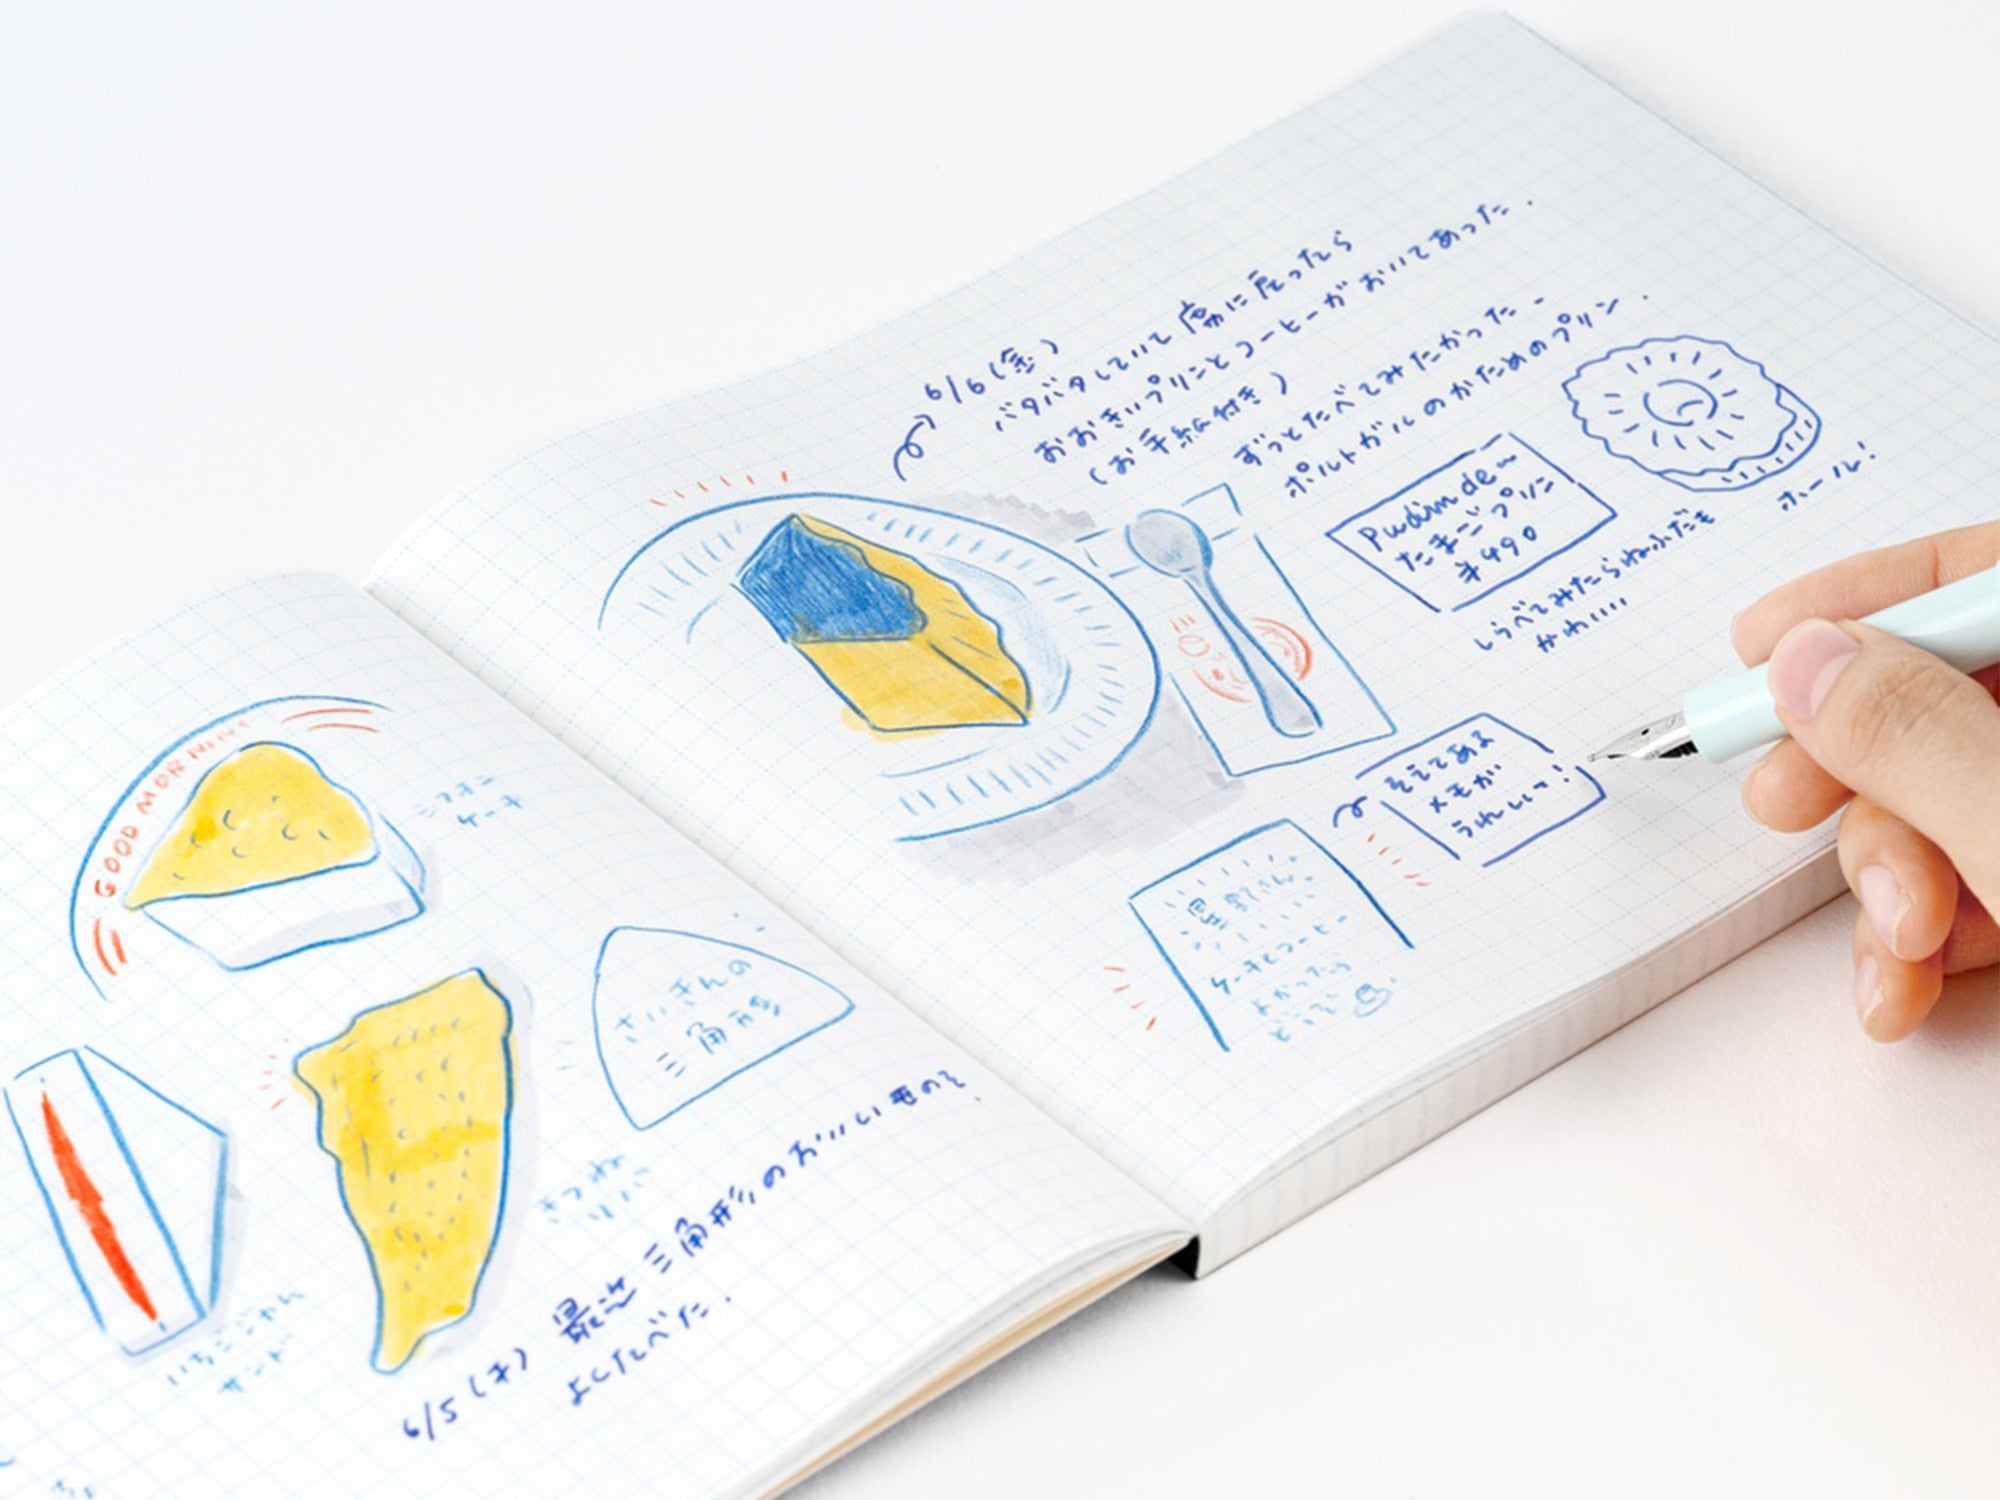 GOOD MORNING
シフォン
ケーキ
さいきんの
三角形
きつね
パン
いちごジャム
サンド
6/5(木) 最近三角形のおいしいものを
よくたべた.
6/6(金)
バタバタしていて席に戻ったら
おおきいプリンとコーヒーがおいてあった.
(お手紙付き)
ずっとたべてみたかったー
ポルトガルのかためのプリン.
Pudim de〜
たまごプリン
¥490
ホール!
しらべてみたらねふだも
かわいい
そえてある
メモが
うれしいっ!
ケーキとコーヒー
よかったら
どうぞ